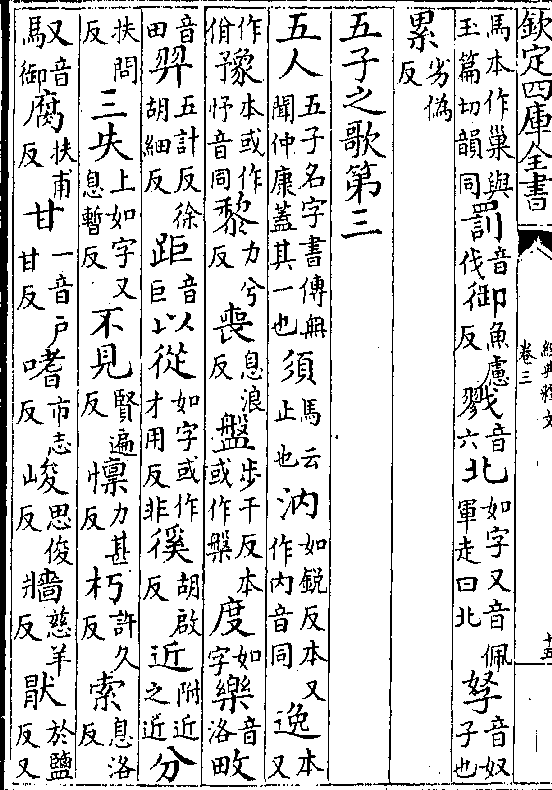 欽定四庫全書
經典釋文
卷三
十五
馬本作巢與玉篇切韻同罰音伐御魚慮反戮音六北如字又音佩軍走曰北孥音奴子也
累劣偽反
五子之歌第三
五人五子名字書傳無聞仲康蓋其一也須馬云止也汭如銳反本又作内音同逸本又
作佾豫本或作忬音同黎力兮反喪息浪反盤步干反本或作槃度如字樂音洛畋
音田羿五計反徐胡細反距音巨以從如字或作才用反非徯胡啟反近附近之近分
扶問反三失上如字又息暫反不見賢遍反懍力甚反朽許久反索息洛反
馬又音御腐扶甫反甘一音戶甘反嗜市志反峻思俊反牆慈羊反猒於鹽反又